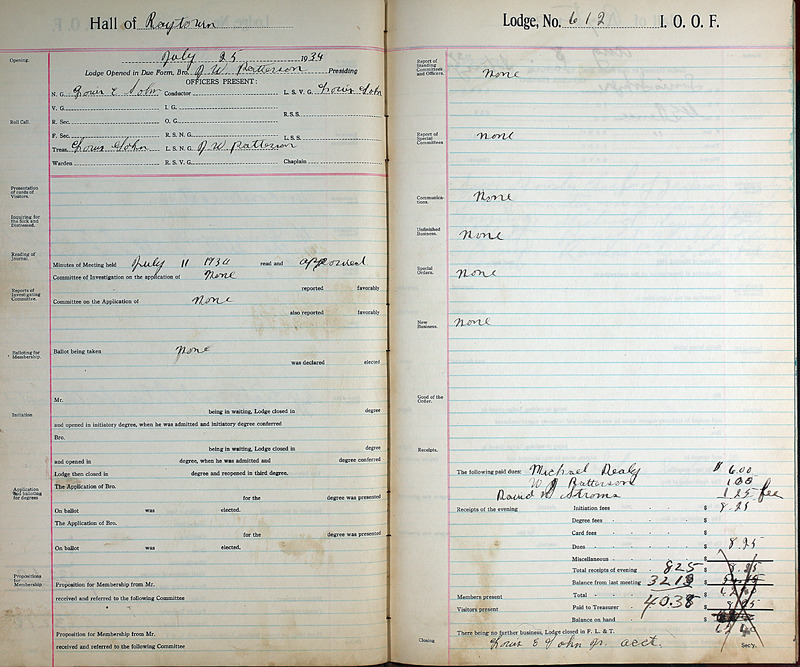 Hall of Raytown
Opening.
July 25 1934
Lodge Opened in Due Form, Bro. J W Patterson Presiding
OFFICERS PRESENT:
Roll Call.
N. G. Louis E John Conductor L. S. V. G. Louis John
V. G. I. G.
R. Sec. O. G. R.S.S.
F. Sec. R. S. N. G. L.S.S.
Treas. Louis John L. S. N. G. J W Patterson
Warden R. S. V. G. Chaplain
Presentation of cards of Visitors.
Inquiring for the Sick and Distressed.
Reading of Journal.
Minutes of Meeting held July 11 1934 read and approved
Committee of Investigation on the application of None
Reports of Investigating Committee.
reported favorably
Committee on the Application of None
also reported favorably
Balloting for Membership.
Ballot being taken None
was declared elected
Mr.
being in waiting, Lodge closed in degree
Initiation
and opened in initiatory degree, when he was admitted and initiatory degree conferred
Bro.
being in waiting, Lodge closed in degree
and opened in degree, when he was admitted and degree conferred
Lodge then closed in degree and reopened in third degree.
Application and balloting for degrees
The Application of Bro.
for the degree was presented
On ballot was elected.
The Application of Bro.
for the degree was presented
On ballot was elected.
Propositions for Membership
Proposition for Membership from Mr.
received and referred to the following Committee
Proposition for Membership from Mr.
received and referred to the following Committee
Lodge, No. 612 I. O. O. F.
Report of Standing Committees and Officers.
None
Report of Special Committees
None
Communications.
None
Unfinished Business.
None
Special Orders.
None
New Business.
None
Good of the Order.
Receipts.
The following paid dues: Michael Dealy $ 6.00
W J Patterson 1 00
David W Stroms 1.25 fee
Receipts of the evening Initiation fees $ 8.25
Degree fees $
Card fees $
Dues $ 8.25
Miscellaneous $
Total receipts of evening 825 $
Balance from last meeting 3213 $
Members present Total 40.38 $
Visitors present Paid to Treasurer $
Balance on hand $
There being no further business, Lodge closed in F. L. & T.
Closing Louis E John Jr. acct. Sec'y.